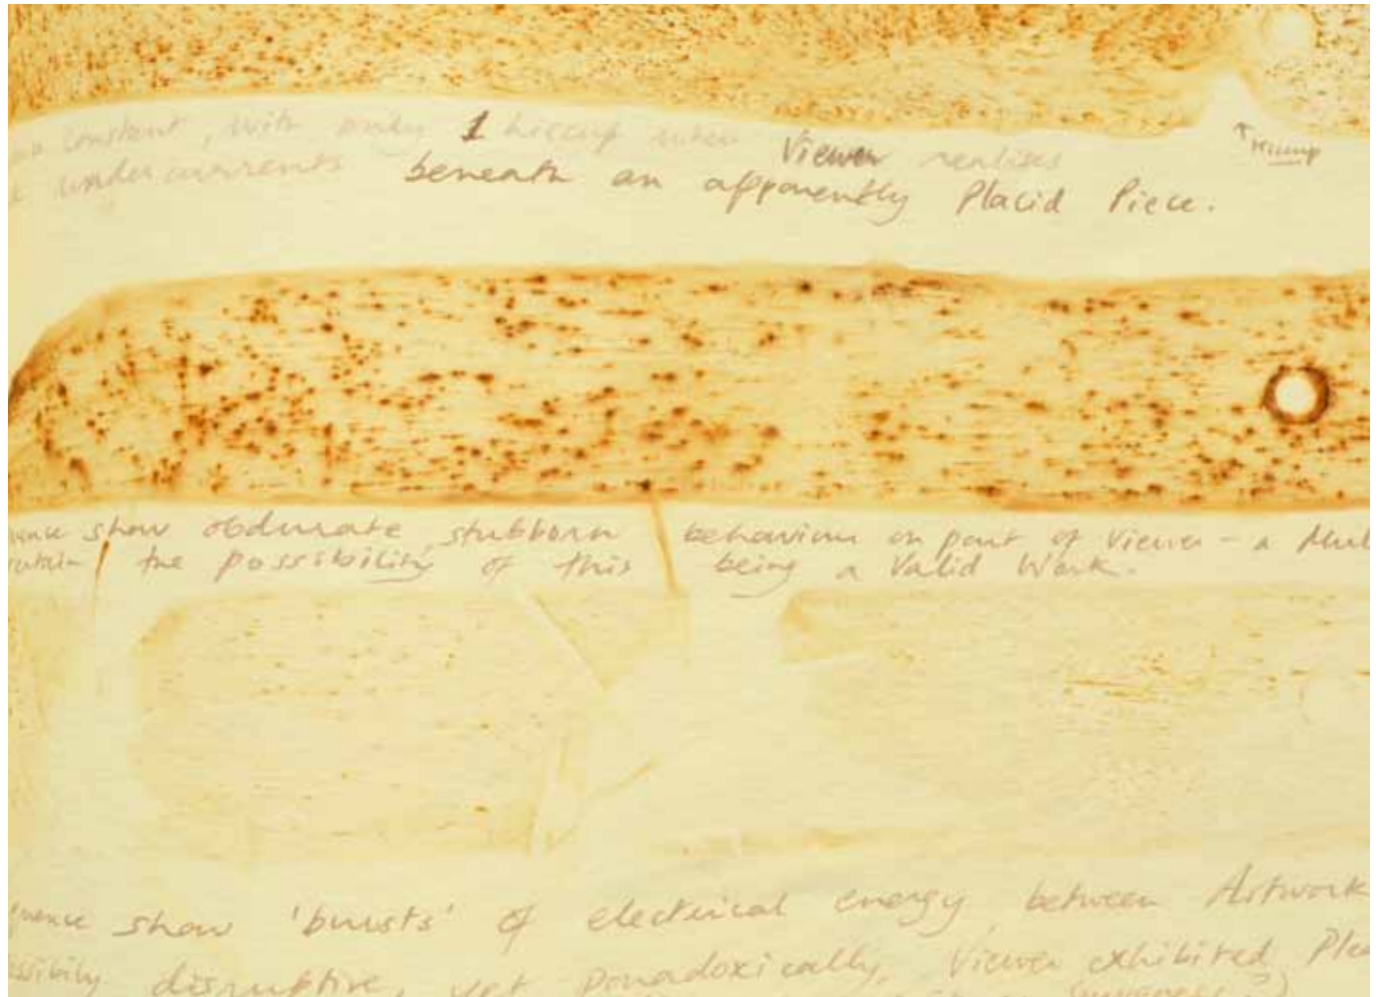 constant, with only 1 hiccup when Viewer realises
undercurrents beneath an apparently Placid Piece.
Hiccup
show obdurate, stubborn behaviour on part of Viewer - a
the possibility of this being a Valid Work.
show 'bursts' of electrical energy, between Artwork
disruptive, yet paradoxically, Viewer exhibited